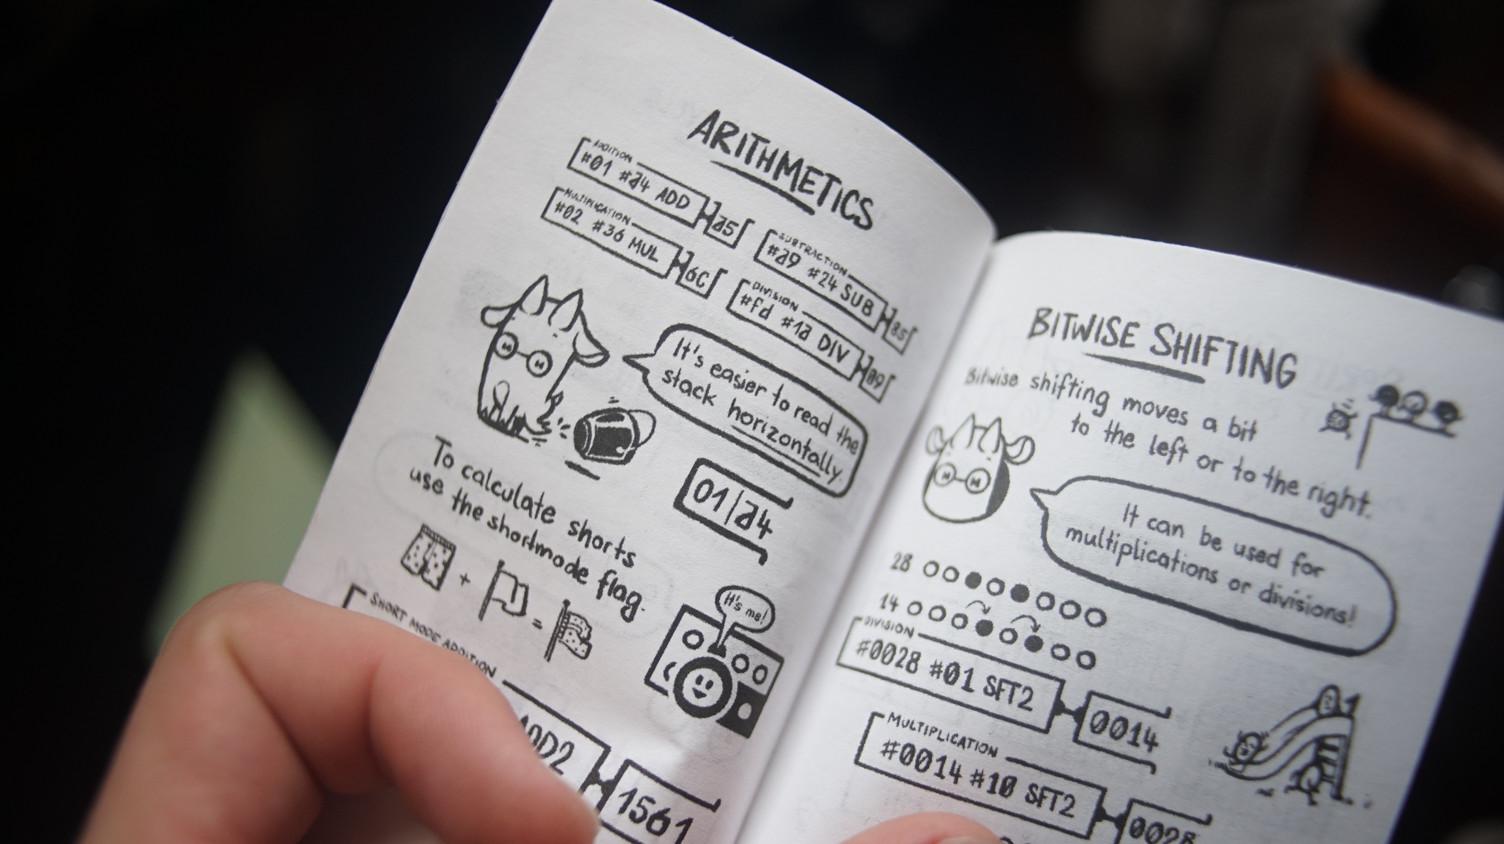 ARITHMETICS
ADDITION
#01 #a4 ADD a5
SUBTRACTION
#a9 #24 SUB 85
MULTIPLICATION
#02 #36 MUL 6C
DIVISION
#fd #1a DIV 09
It's easier to read the
stack horizontally.
01/a4
To calculate shorts
use the shortmode flag.
+ =
It's me!
SHORT MODE ADDITION
ADD2 1561
BITWISE SHIFTING
Bitwise shifting moves a bit
to the left or to the right.
It can be used for
multiplications or divisions!
28
14
DIVISION
#0028 #01 SFT2 0014
MULTIPLICATION
#0014 #10 SFT2 0028